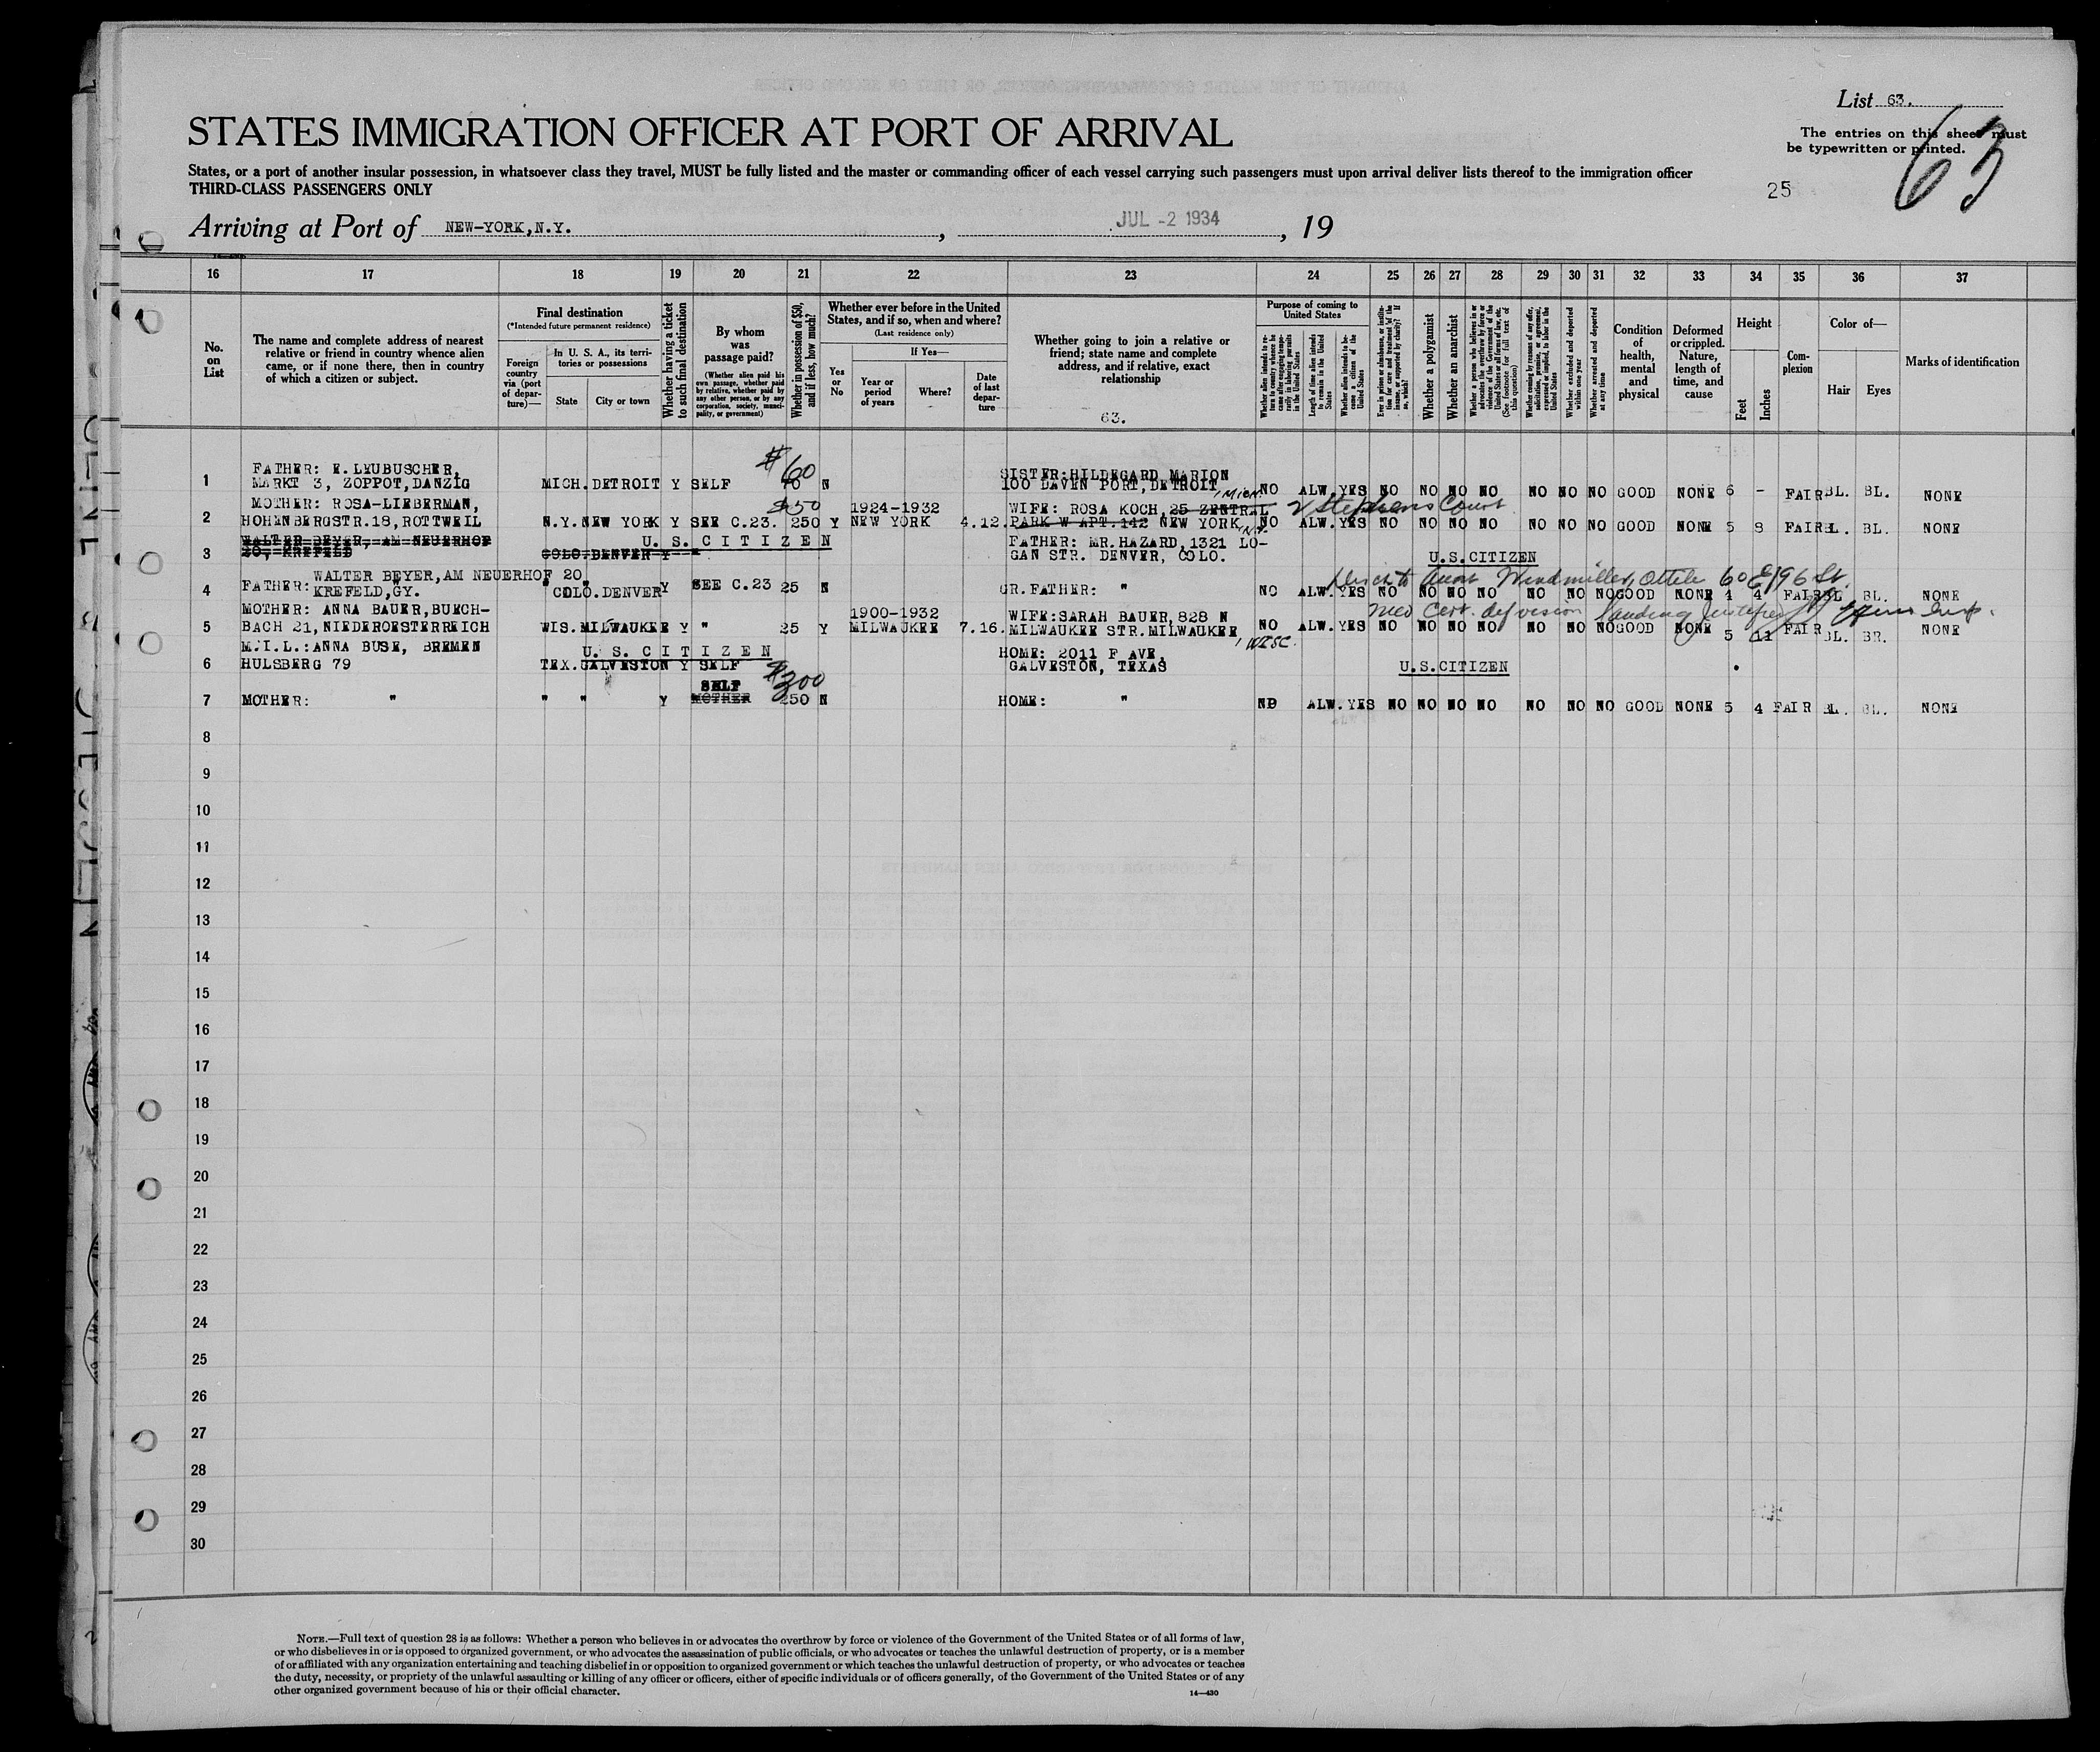 List 63.
STATES IMMIGRATION OFFICER AT PORT OF ARRIVAL
The entries on this sheet must
be typewritten or printed.
63
States, or a port of another insular possession, in whatsoever class they travel, MUST be fully listed and the master or commanding officer of each vessel carrying such passengers must upon arrival deliver lists thereof to the immigration officer
THIRD-CLASS PASSENGERS ONLY
25
Arriving at Port of NEW-YORK,N.Y. , JUL -2 1934 , 19
16 17 18 19 20 21 22 23 24 25 26 27 28 29 30 31 32 33 34 35 36 37
No. on List
The name and complete address of nearest relative or friend in country whence alien came, or if none there, then in country of which a citizen or subject.
Final destination
(*Intended future permanent residence)
Foreign country via (port of departure)—
In U. S. A., its territories or possessions
State
City or town
Whether having a ticket to such final destination
By whom was passage paid?
(Whether alien paid his own passage, whether paid by relative, whether paid by any other person, or by any corporation, society, municipality, or government)
Whether in possession of $50, and if less, how much?
Whether ever before in the United States, and if so, when and where?
(Last residence only)
Yes or No
If Yes—
Year or period of years
Where?
Date of last departure
Whether going to join a relative or friend; state name and complete address, and if relative, exact relationship
63.
Purpose of coming to United States
Whether alien intends to return to country whence he came after engaging temporarily in laboring pursuits in the United States
Length of time alien intends to remain in the United States
Whether alien intends to become a citizen of the United States
Ever in prison or almshouse, or institution for care and treatment of the insane, or supported by charity? If so, which?
Whether a polygamist
Whether an anarchist
Whether a person who believes in or advocates the overthrow by force or violence of the Government of the United States or all forms of law, etc. (See footnote for full text of this question)
Whether coming by reason of any offer, solicitation, promise, or agreement, expressed or implied, to labor in the United States
Whether excluded and deported within one year
Whether arrested and deported at any time
Condition of health, mental and physical
Deformed or crippled. Nature, length of time, and cause
Height
Feet
Inches
Complexion
Color of—
Hair
Eyes
Marks of identification
1 FATHER: E.LEUBUSCHER, MARKT 3, ZOPPOT,DANZIG MICH.DETROIT Y SELF $60 N SISTER:HILDEGARD MARION 100 DAVEN PORT,DETROIT, Mich NO ALW. YES NO NO NO NO NO NO NO GOOD NONE 6 - FAIR BL. BL. NONE
2 MOTHER: ROSA-LIEBERMAN, HOHENBERGSTR.18,ROTTWEIL N.Y.NEW YORK Y SEE C.23. $50 250 Y 1924-1932 NEW YORK 4.12. WIFE: ROSA KOCH,25 ZENTRAL PARK W APT.142 NEW YORK N.Y. 2 Stephens Court NO ALW. YES NO NO NO NO NO NO NO GOOD NONE 5 8 FAIR BL. BL. NONE
3 WALTER BEYER, AM NEUERHOF 20, KREFELD COLO.DENVER Y " U. S. C I T I Z E N FATHER: MR.HAZARD,1321 LOGAN STR. DENVER, COLO. U.S.CITIZEN
4 FATHER: WALTER BEYER,AM NEUERHOF 20, KREFELD,GY. COLO.DENVER Y SEE C.23 25 N GR.FATHER: " Disch to Aunt Windmiller, Ottile 60 E 196 St. NO ALW. YES NO NO NO NO NO NO NO GOOD NONE 4 4 FAIR BL BL. NONE
5 MOTHER: ANNA BAUER,BUCH-BACH 21,NIEDEROESTERREICH WIS.MILWAUKEE Y " 25 Y 1900-1932 MILWAUKEE 7.16. WIFE:SARAH BAUER,828 N MILWAUKEE STR.MILWAUKEE, WISC. Med Cert. def vision landing NO ALW. YES NO NO NO NO NO NO NO GOOD NONE 5 11 FAIR BL. BR. NONE
6 M.I.L.:ANNA BUSE, BREMEN HULSBERG 79 TEX.GALVESTON Y SELF U. S. C I T I Z E N HOME: 2011 F AVE, GALVESTON, TEXAS U.S.CITIZEN
7 MOTHER: " " " Y SELF MOTHER $300 250 N HOME: " NO ALW. YES NO NO NO NO NO NO NO GOOD NONE 5 4 FAIR BL. BL. NONE
8
9
10
11
12
13
14
15
16
17
18
19
20
21
22
23
24
25
26
27
28
29
30
NOTE.—Full text of question 28 is as follows: Whether a person who believes in or advocates the overthrow by force or violence of the Government of the United States or of all forms of law,
or who disbelieves in or is opposed to organized government, or who advocates the assassination of public officials, or who advocates or teaches the unlawful destruction of property, or is a member
of or affiliated with any organization entertaining and teaching disbelief in or opposition to organized government or which teaches the unlawful destruction of property, or who advocates or teaches
the duty, necessity, or propriety of the unlawful assaulting or killing of any officer or officers, either of specific individuals or of officers generally, of the Government of the United States or of any
other organized government because of his or their official character.
14—430